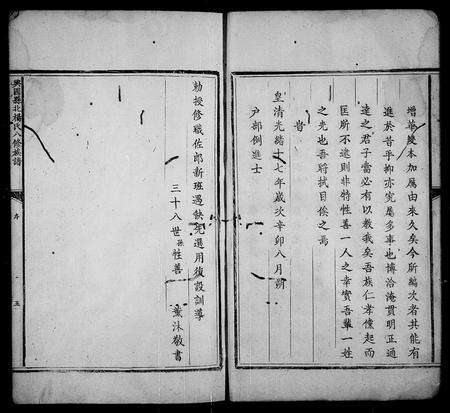 增華變本加厲由來久矣今所編次者其能有
進於昔乎抑亦究屬多事也博洽淹貫明正通
達之君子當必有以教我矣吾族仁孝儻起而
匡所不逮則非特性善一人之幸實吾輩一姓
之先也吾將拭目俟之焉
旹
皇清光緒十七年歲次辛卯八月朔
戶部例進士
勅授修職佐郎新班遇缺先選用復設訓導
三十八世孫性善薰沐敬書
興國縣北楊氏八修族譜
序
五